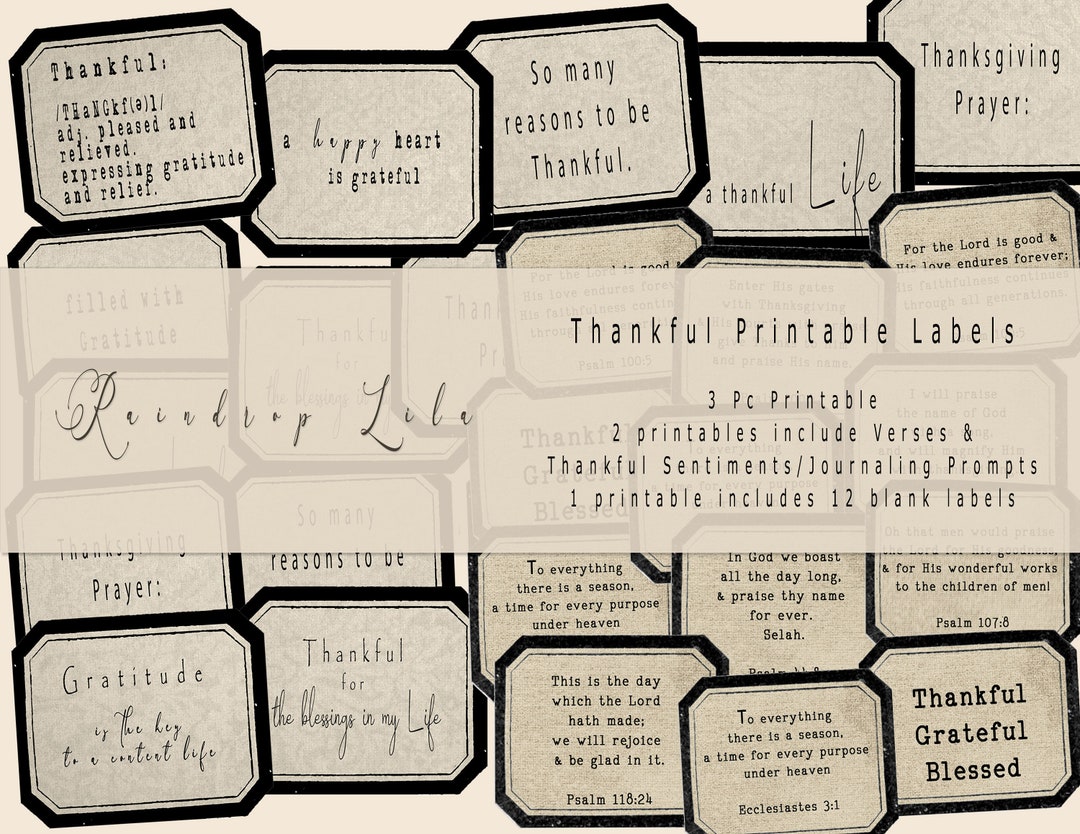 Thankful:
/THaNGkf(ə)l/
adj. pleased and
relieved.
expressing gratitude
and relief.
a happy heart
is grateful
So many
reasons to be
Thankful.
a thankful Life
Thanksgiving
Prayer:
For the Lord is good &
His love endures forever;
His faithfulness continues
through all generations.
For the Lord is good &
His love endures forev
His faithfulness contin
throug
Psalm 100:5
Enter His gates
with Thanksgiving
and praise His name.
filled with
Gratitude
Thankfu
for
the blessings in
Than
Pr
Thankful Printable Labels
Raindrop Lila
3 Pc Printable
2 printables include Verses &
Thankful Sentiments/Journaling Prompts
1 printable includes 12 blank labels
I will praise
the name of God
and will magnify Him
Thankful
Grateful
Blessed
To everything
there is a season,
a time for every purpose
Thanksgiving
Prayer:
So many
reasons to be
To everything
there is a season,
a time for every purpose
under heaven
In God we boast
all the day long,
& praise thy name
for ever.
Selah.
Oh that men would praise
the Lord for His goodness,
& for His wonderful works
to the children of men!
Psalm 107:8
Gratitude
is the key
to a content life
Thankful
for
the blessings in my Life
This is the day
which the Lord
hath made;
we will rejoice
& be glad in it.
Psalm 118:24
To everything
there is a season,
a time for every purpose
under heaven
Ecclesiastes 3:1
Thankful
Grateful
Blessed